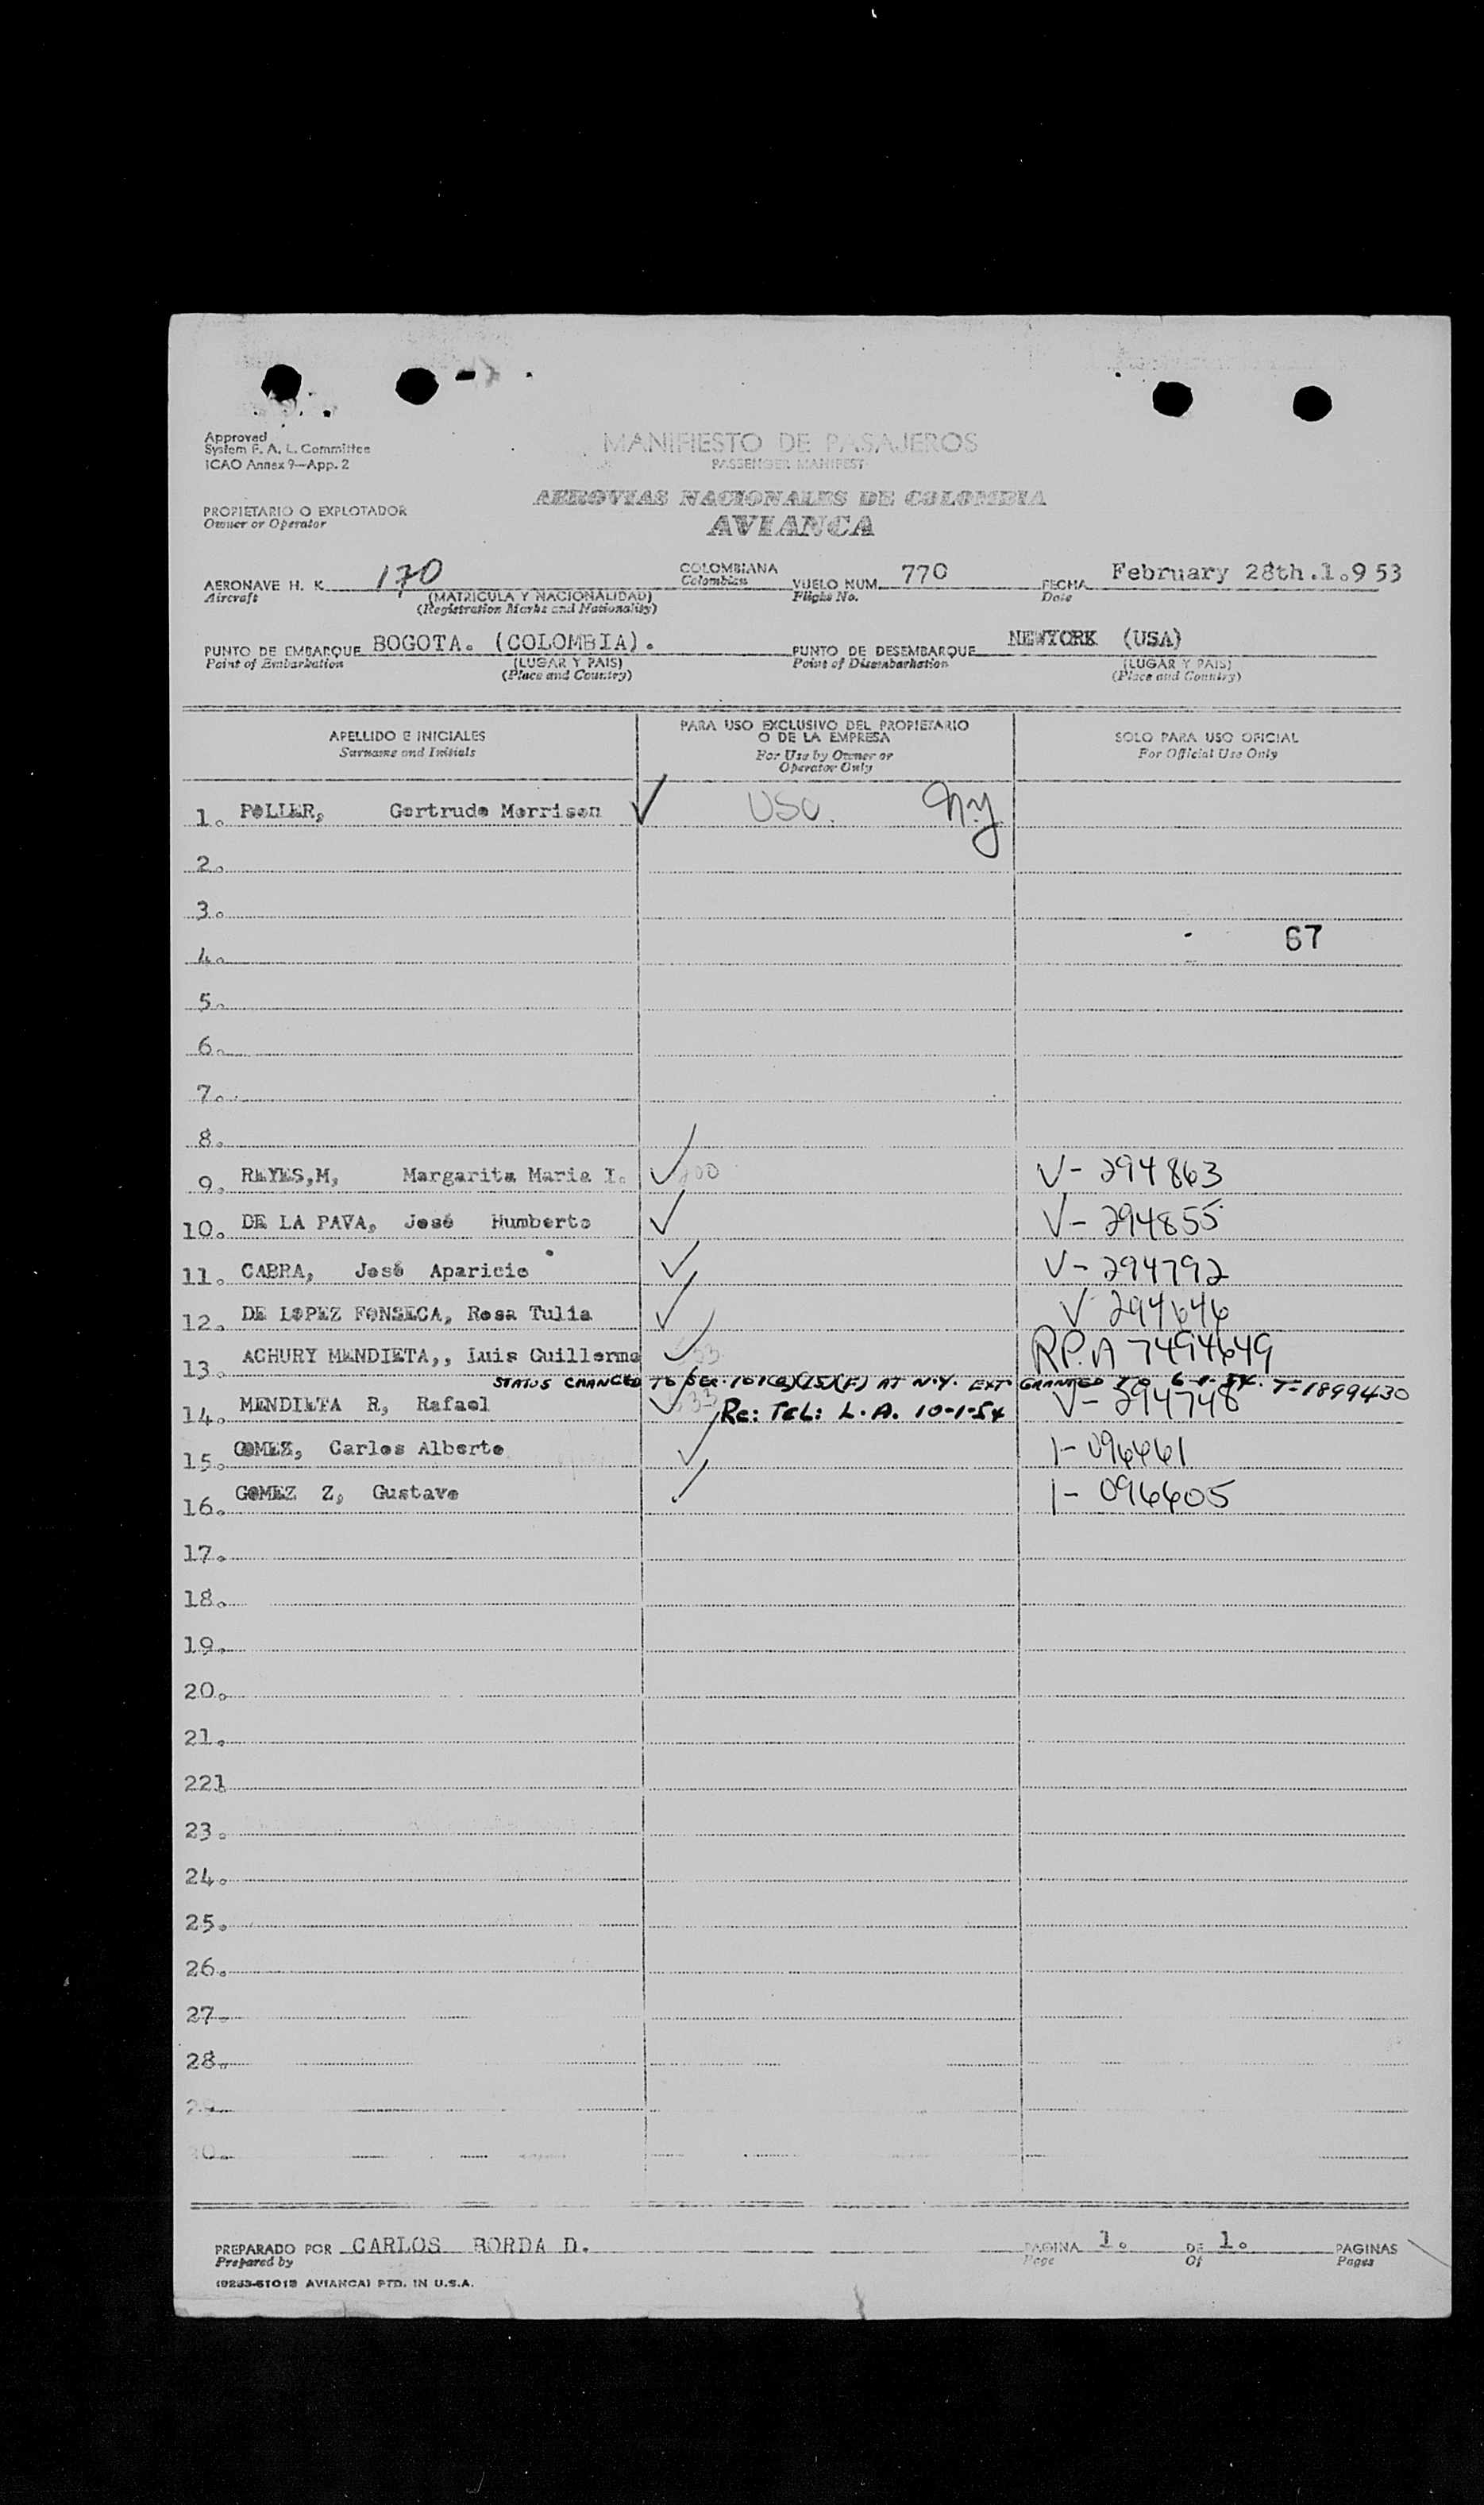 Approved
System F. A. L. Committee
ICAO Annex 9—App. 2
MANIFIESTO DE PASAJEROS
PASSENGER MANIFEST
PROPIETARIO O EXPLOTADOR
Owner or Operator
AEROVIAS NACIONALES DE COLOMBIA
AVIANCA
AERONAVE H. K. 170 COLOMBIANA VUELO NUM. 770 FECHA February 28th.1.9 53
Aircraft (MATRICULA Y NACIONALIDAD) Colombian Flight No. Date
(Registration Marks and Nationality)
PUNTO DE EMBARQUE BOGOTA. (COLOMBIA). PUNTO DE DESEMBARQUE NEWYORK (USA)
Point of Embarkation (LUGAR Y PAIS) Point of Disembarkation (LUGAR Y PAIS)
(Place and Country) (Place and Country)
APELLIDO E INICIALES PARA USO EXCLUSIVO DEL PROPIETARIO SOLO PARA USO OFICIAL
Surname and Initials O DE LA EMPRESA For Official Use Only
For Use by Owner or
Operator Only
1. POLLER, Gertrude Morrison ✓ USC. N.Y
2.
3.
67
4.
5.
6.
7.
8.
9. REYES,M, Margarita Maria I. ✓ V- 294863
10. DE LA PAVA, José Humberto ✓ V- 294855
11. CABRA, José Aparicio ✓ V- 294792
12. DE LOPEZ FONSECA, Rosa Tulia ✓ V 294646
13. ACHURY MENDIETA,, Luis Guillermo ✓ R.P. A 7494649
STATUS CHANGED TO SEC. 101(a)(15)(F) AT N.Y. EXT GRANTED TO 6-1-54. T-1899430
14. MENDIETA R, Rafael ✓ Re: TEL: L.A. 10-1-54 V- 294748
15. GOMEZ, Carlos Alberto ✓ 1- 096461
16. GOMEZ Z, Gustavo ✓ 1- 096605
17.
18.
19.
20.
21.
221
23.
24.
25.
26.
27.
28.
PREPARADO POR CARLOS BORDA D. PAGINA 1. DE 1. PAGINAS
Prepared by Page Of Pages
AVIANCA) PTD. IN U.S.A.